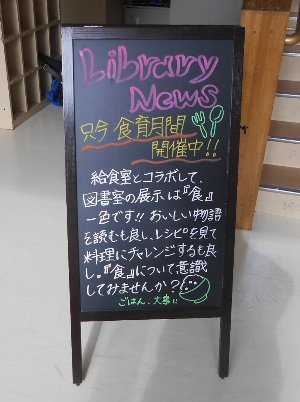 Library
News
只今 食育月間
開催中!!
給食室とコラボして、
図書室の展示は『食』
一色です!! おいしい物語
を読むも良し、レシピを見て
料理にチャレンジするも良
し。『食』について意識
してみませんか?
ごはん、大事!!